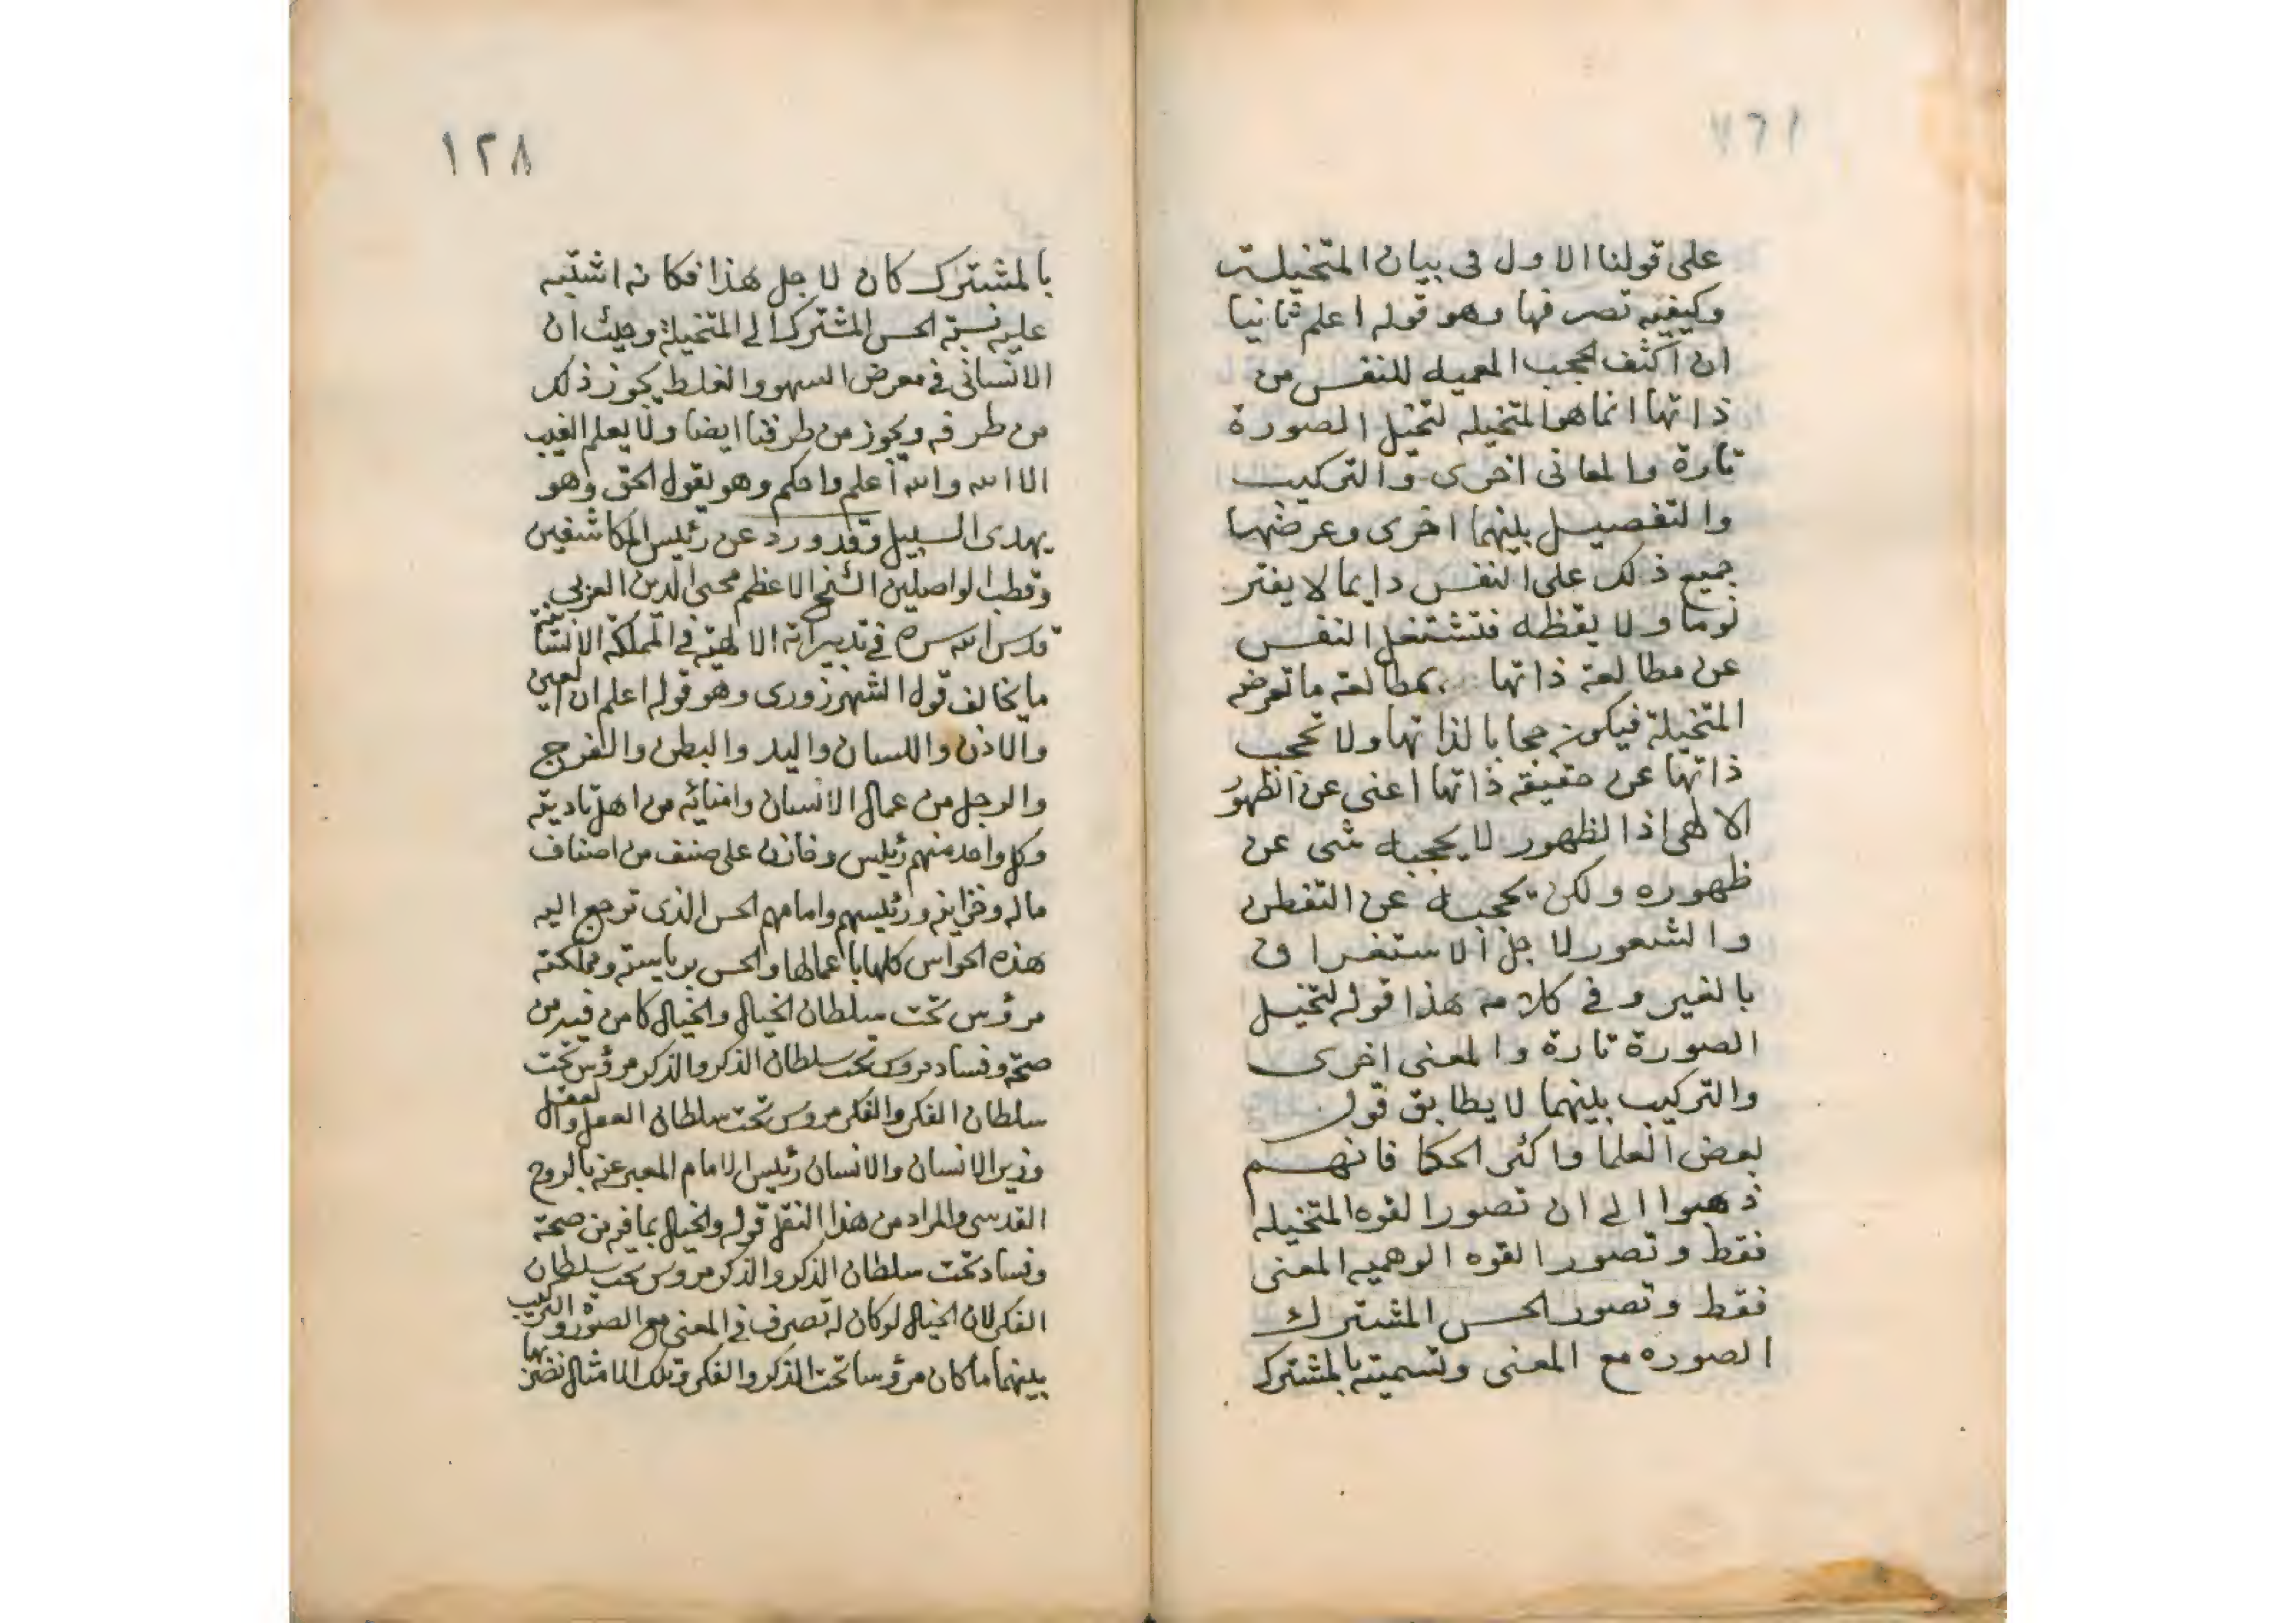 على قولنا الاول فى بيان المتخيلة
وكيفيه تصرفها وهو قوله اعلم ثانيا
ان اكثف الحجب المعميه للنفس من
ذاتها انما هو المتخيله لتخيل الصورة
تارة والمعانى اخرى والتركيب
والتفصيل بينهما اخرى وعرضها
جميع ذلك على النفس دايما لا يفتر
نوما ولا يقظه فتشتغل النفس
عن مطالعة ذاتها بمطالعة ما تعرضه
المتخيلة فيكون حجابا لذاتها ولا تحجب
ذاتها عن حقيقه ذاتها اعنى عن الظهور
الالهى اذ الظهور لا يحجبه شى عن
ظهوره ولكن يحجبه عن التفطن
والشعور لاجل الاستغراق
بالغير وفى كلامه هذا قوله لتخيل
الصورة تارة والمعنى اخرى
والتركيب بينهما لا يطابق قول
بعض العلما واكثر الحكما فانهم
ذهبوا الى ان تصور القوه المتخيله
فقط وتصور القوه الوهميه المعنى
فقط وتصور الحس المشترك
الصوره مع المعنى وتسميته بالمشترك
١٢٨
بالمشترك كان لاجل هذا فكانه اشتبه
عليه نسبة الحس المشترك الى المتخيلة وحيث ان
الانسانى فى معرض السهو والغلط يجوز ذلك
من طرفه ويجوز من طرفنا ايضا ولا يعلم الغيب
الا الله والله اعلم واحكم وهو يقول الحق وهو
يهدى السبيل وقد ورد عن رئيس المكاشفين
وقطب الواصلين الشيخ الاعظم محيى الدين العربى
قدس الله سره فى تدبيراته الالهية فى المملكة الانسانية
ما يخالف قول الشهرزورى وهو قوله اعلم ان العين
والاذن واللسان واليد والبطن والفرج
والرجل من عمال الانسان وامنائه من اهل باديته
وكل واحد منهم رئيس وخازن على صنف من اصناف
ماله وخزاينه ورئيسهم وامامهم الحس الذى ترجع اليه
هذه الحواس كلها باعمالها والحس برياسته ومملكته
مرؤس تحت سلطان الخيال والخيال كا من فيه من
صحة وفساد مروس تحت سلطان الذكر والذكر مرؤس تحت
سلطان الفكر والفكر مروس تحت سلطان العقل والعقل
وزير الانسان والانسان رئيس الامام المعبر عنه بالروح
القدسى والمراد من هذا النقل قوله والخيال بما فيه من صحة
وفساد تحت سلطان الذكر والذكر مروس تحت سلطان
الفكر لان الخيال لو كان له تصرف فى المعنى مع الصورة والتركيب
بينهما ما كان مرؤسا تحت الذكر والفكر وتلك الامثال نضربها